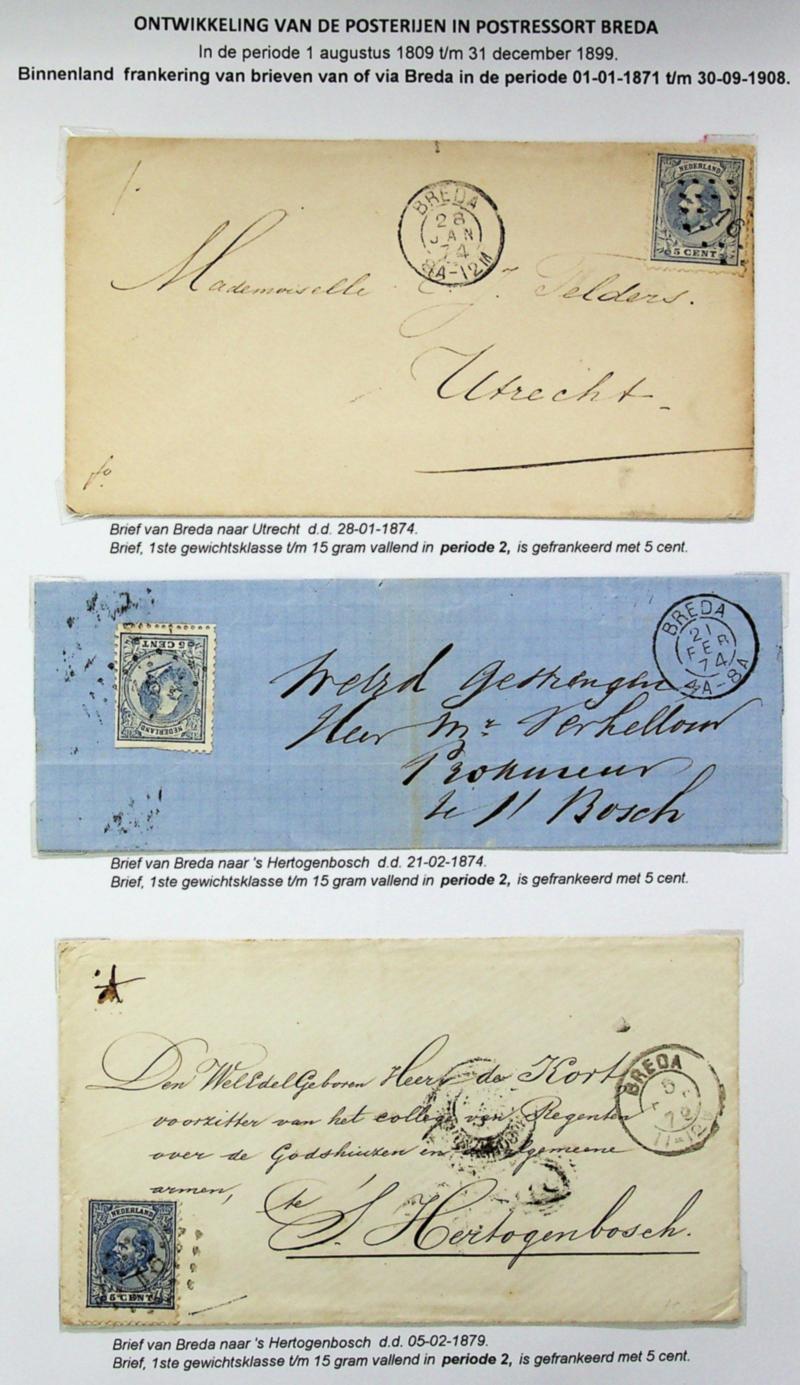 ONTWIKKELING VAN DE POSTERIJEN IN POSTRESSORT BREDA
In de periode 1 augustus 1809 t/m 31 december 1899.
Binnenland frankering van brieven van of via Breda in de periode 01-01-1871 t/m 30-09-1908.
BREDA
28
JAN
74
8A-12M
NEDERLAND
16
5 CENT
Mademoiselle J. Felders.
Utrecht
fo
Brief van Breda naar Utrecht d.d. 28-01-1874.
Brief, 1ste gewichtsklasse t/m 15 gram vallend in periode 2, is gefrankeerd met 5 cent.
BREDA
21
FEB
74
4A-8A
5 CENT
NEDERLAND
Weled Gestrengen
Heer Mr Verhellouw
Prokureur
te 's Bosch
Brief van Breda naar 's Hertogenbosch d.d. 21-02-1874.
Brief, 1ste gewichtsklasse t/m 15 gram vallend in periode 2, is gefrankeerd met 5 cent.
Den WelEdelGeboren Heer de Kort
voorzitter van het collegie van Regenten
over de Godshuizen en algemeene
armen,
te
S. Hertogenbosch.
BREDA
5
79
11-12
NEDERLAND
5 CENT
Brief van Breda naar 's Hertogenbosch d.d. 05-02-1879.
Brief, 1ste gewichtsklasse t/m 15 gram vallend in periode 2, is gefrankeerd met 5 cent.